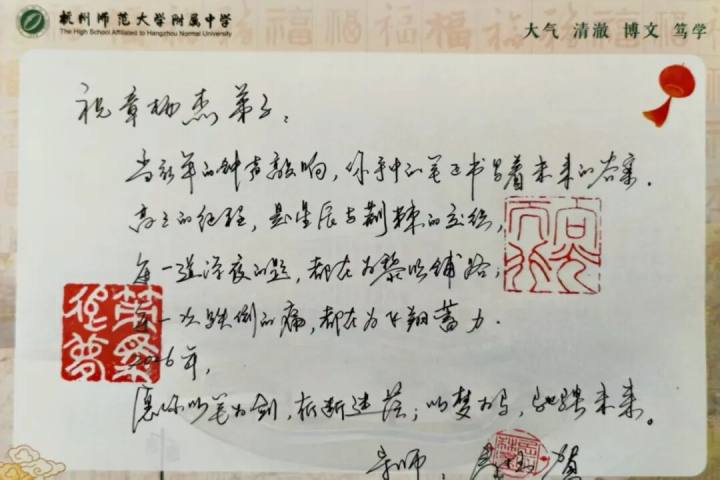 杭州师范大学附属中学
The High School Affiliated to Hangzhou Normal University
大气 清澈 博文 笃学
祝章杨杰弟子:
当新年的钟声敲响,你手中的笔正书写着未来的答案.
高三的征程,是星辰与荆棘的交织,
每一道深夜的题,都在为黎明铺路;
每一次跌倒的痛,都在为飞翔蓄力.
2026年,
愿你以笔为剑,斩断迷茫;以梦为马,驰骋未来。
导师:
贺